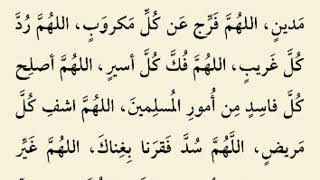 مَدينٍ، اللهُمَّ فَرِّج عَن كُلِّ مَكروبٍ، اللهُمَّ رُدَّ
كُلَّ غَريبٍ، اللهُمَّ فُكَّ كُلَّ أسيرٍ، اللهُمَّ أصلِح
كُلَّ فاسِدٍ مِن أُمورِ المُسلِمينَ، اللهُمَّ اشفِ كُلَّ
مَريضٍ، اللَّهُمَّ سُدَّ فَقرَنا بِغِناكَ، اللهُمَّ غَيِّر